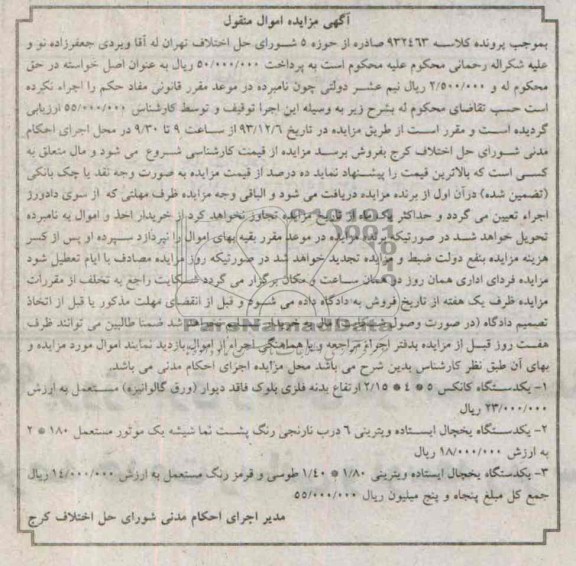 آگهی مزایده اموال منقول
بموجب پرونده کلاسه ۹۳۲۴۶۳ صادره از حوزه ۵ شورای حل اختلاف تهران له آقا ویردی جعفرزاده نو و
علیه شکراله رحمانی محکوم علیه محکوم است به پرداخت ۵۰/۰۰۰/۰۰۰ ریال به عنوان اصل خواسته در حق
محکوم له و ۲/۵۰۰/۰۰۰ ریال نیم عشر دولتی چون نامبرده در موعد مقرر قانونی مفاد حکم را اجراء نکرده
است حسب تقاضای محکوم له بشرح زیر به وسیله این اجرا توقیف و توسط کارشناس ۵۵/۰۰۰/۰۰۰ ارزیابی
گردیده است و مقرر است از طریق مزایده در تاریخ ۹۳/۱۲/۶ از ساعت ۹ تا ۹/۳۰ در محل اجرای احکام
مدنی شورای حل اختلاف کرج بفروش برسد مزایده از قیمت کارشناسی شروع می شود و مال متعلق به
کسی است که بالاترین قیمت را پیشنهاد نماید ده درصد از قیمت مزایده به صورت وجه نقد یا چک بانکی
(تضمین شده) درآن اول از برنده مزایده دریافت می شود و الباقی وجه مزایده ظرف مهلتی که از سوی دادورز
اجراء تعیین می گردد و حداکثر یکماه از تاریخ مزایده تجاوز نخواهد کرد از خریدار اخذ و اموال به نامبرده
تحویل خواهد شد در صورتیکه برنده مزایده در موعد مقرر بقیه بهای اموال را نپردازد سپرده او پس از کسر
هزینه مزایده بنفع دولت ضبط و مزایده تجدید خواهد شد در صورتیکه روز مزایده مصادف با ایام تعطیل شود
مزایده فردای اداری همان روز در همان ساعت و مکان برگزار می گردد شکایت راجع به تخلف از مقررات
مزایده ظرف یک هفته از تاریخ فروش به دادگاه داده می شود و قبل از انقضای مهلت مذکور یا قبل از اتخاذ
تصمیم دادگاه (در صورت وصول شکایت) مال به خریدار تسلیم نخواهد شد ضمنا طالبین می توانند ظرف
هفت روز قبل از مزایده بدفتر اجراء مراجعه و با هماهنگی اجراء از اموال بازدید نمایند اموال مورد مزایده و
بهای آن طبق نظر کارشناس بدین شرح می باشد محل مزایده اجرای احکام مدنی می باشد.
۱- یکدستگاه کانکس ۵ * ۴ * ۲/۱۵ ارتفاع بدنه فلزی بلوک فاقد دیوار (ورق گالوانیزه) مستعمل به ارزش
۲۳/۰۰۰/۰۰۰ ریال
۲- یکدستگاه یخچال ایستاده ویترینی ۶ درب نارنجی رنگ پشت نما شیشه یک موتور مستعمل ۱۸۰ * ۲
به ارزش ۱۸/۰۰۰/۰۰۰ ریال
۳- یکدستگاه یخچال ایستاده ویترینی ۱/۸۰ * ۱/۴۰ طوسی و قرمز رنگ مستعمل به ارزش ۱۴/۰۰۰/۰۰۰ ریال
جمع کل مبلغ پنجاه و پنج میلیون ریال ۵۵/۰۰۰/۰۰۰
مدیر اجرای احکام مدنی شورای حل اختلاف کرج